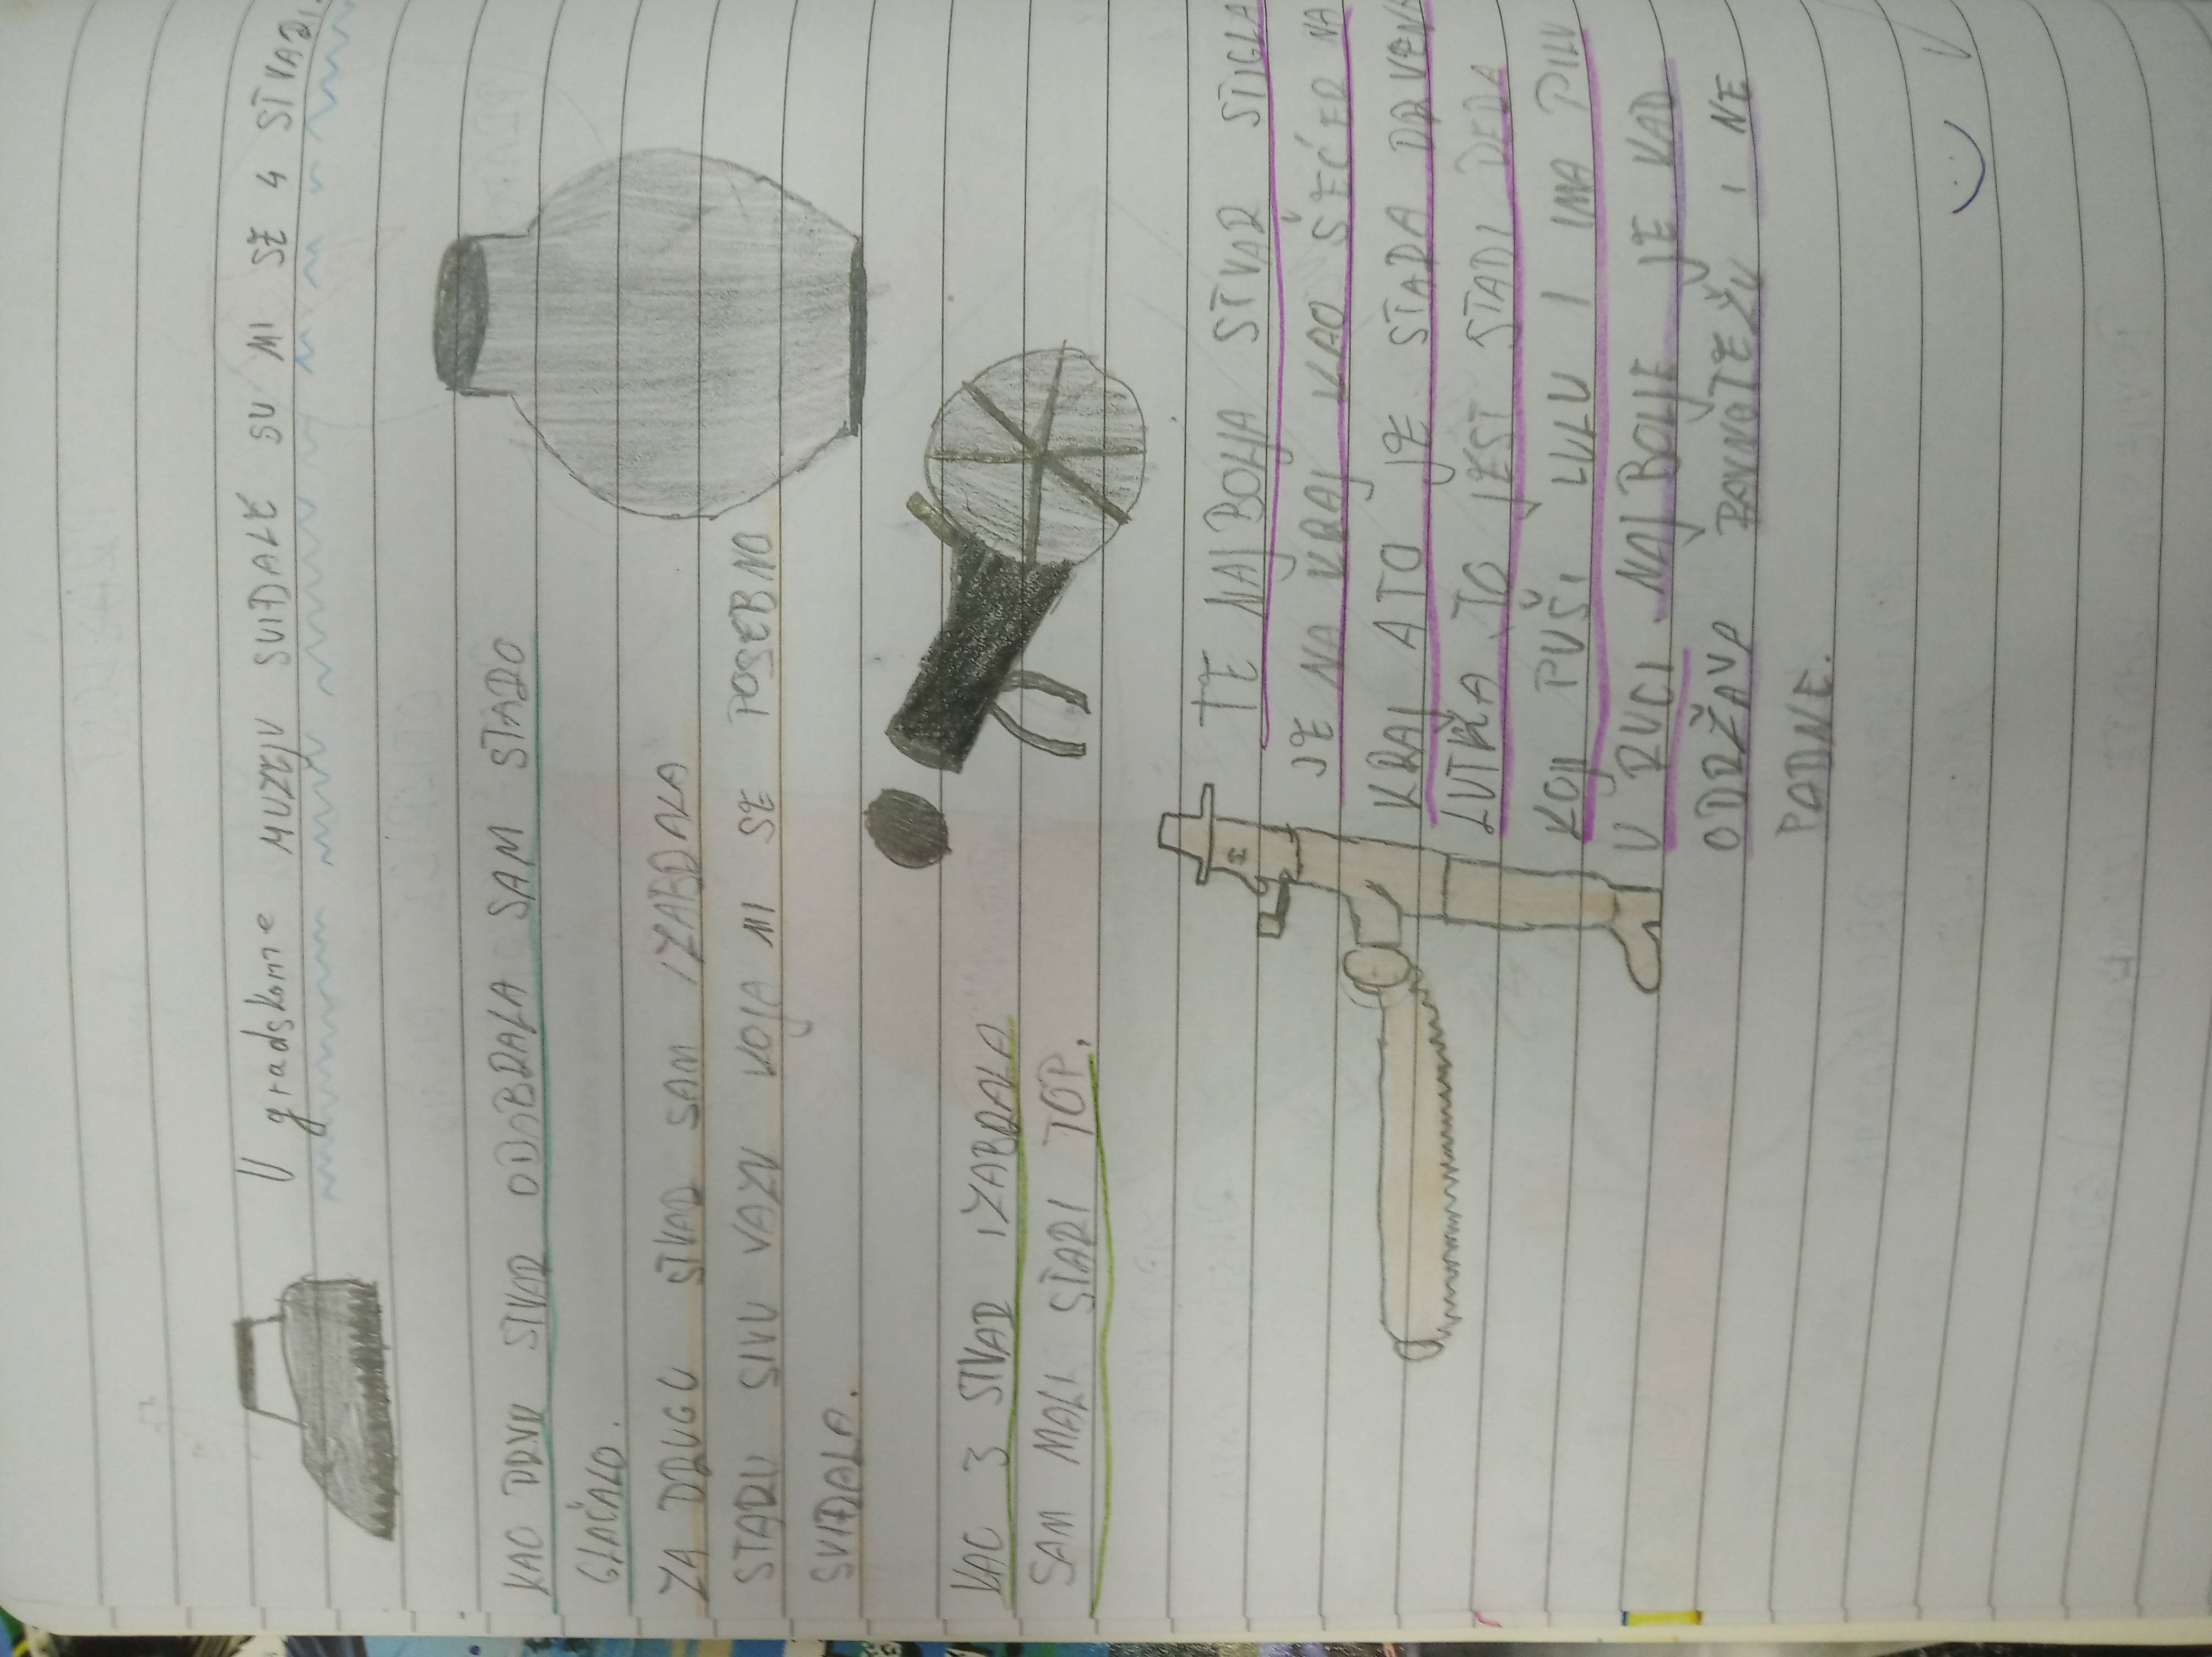 U gradskome MUZEJU SVIĐALE SU MI SE 4 STVARI.
KAO PRVU STVAR ODABRALA SAM STARO
GLAČALO.
ZA DRUGU STVAR SAM IZABRALA
STARU SIVU VAZU KOJA MI SE POSEBNO
SVIĐALA.
KAO 3 STVAR IZABRALA
SAM MALI STARI TOP.
TE NAJ BOLJA STVAR STIGLA
JE NA KRAJ KAO ŠEĆER NA
KRAJ A TO JE STARA DRVENA
LUTKA TO JEST STARI DEDA
KOJI PUŠI LULU I IMA PILU
U RUCI NAJ BOLJE JE KAD
ODRŽAVA RAVNOTEŽU I NE
PADNE.